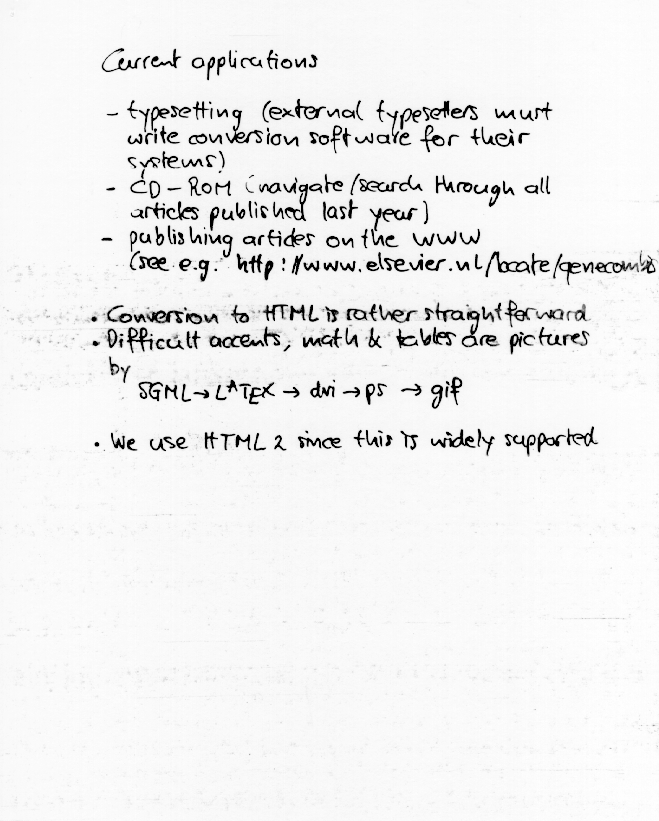 Current applications
- typesetting (external typesetters must
write conversion software for their
systems)
- CD-ROM (navigate/search through all
articles published last year)
- publishing articles on the WWW
(see e.g. http://www.elsevier.nl/locate/genecombis
• Conversion to HTML is rather straightforward
• Difficult accents, math & tables are pictures
by
SGML → LATEX → dvi → ps → gif
• We use HTML 2 since this is widely supported